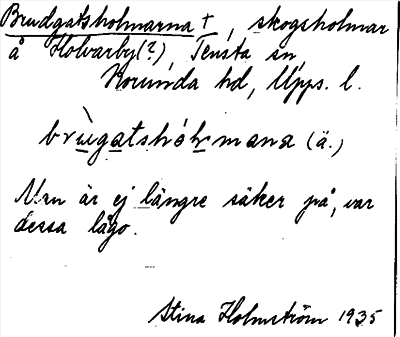 Brudgatsholmarna +, skogsholmar
å Holvarby(?), Tensta sn,
Norunda hd, Upps. l.
brùgatshòɫmana (ä.)
Man är ej längre säker på, var
dessa lågo.
Stina Holmström 1935